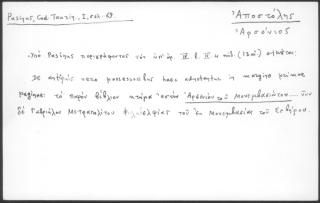 Pasinus, Cod. Taurin., I, σελ. 69.
Ἀποστόλης
Ἀρσένιος
Ὑπὸ Pasinus περιγράφοντας τὸν ὑπ' ἀρ. 4 κώδ. (13 αἰ.)
De antiquis vero possessoribus haec adnotantur in margine primae
paginae: τὸ παρὸν βιβλίον κτῆμα ἐστὶν Ἀρσενίου τοῦ Μονεμβασίωτου.... Νῦν
δὲ Γαβριήλου Μητροπολίτου Φιλαδελφίας τοῦ ἐκ Μονεμβασίας τοῦ Σεβήρου.